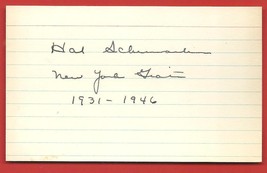 Hal Schumacher
New York Giants
1931 - 1946